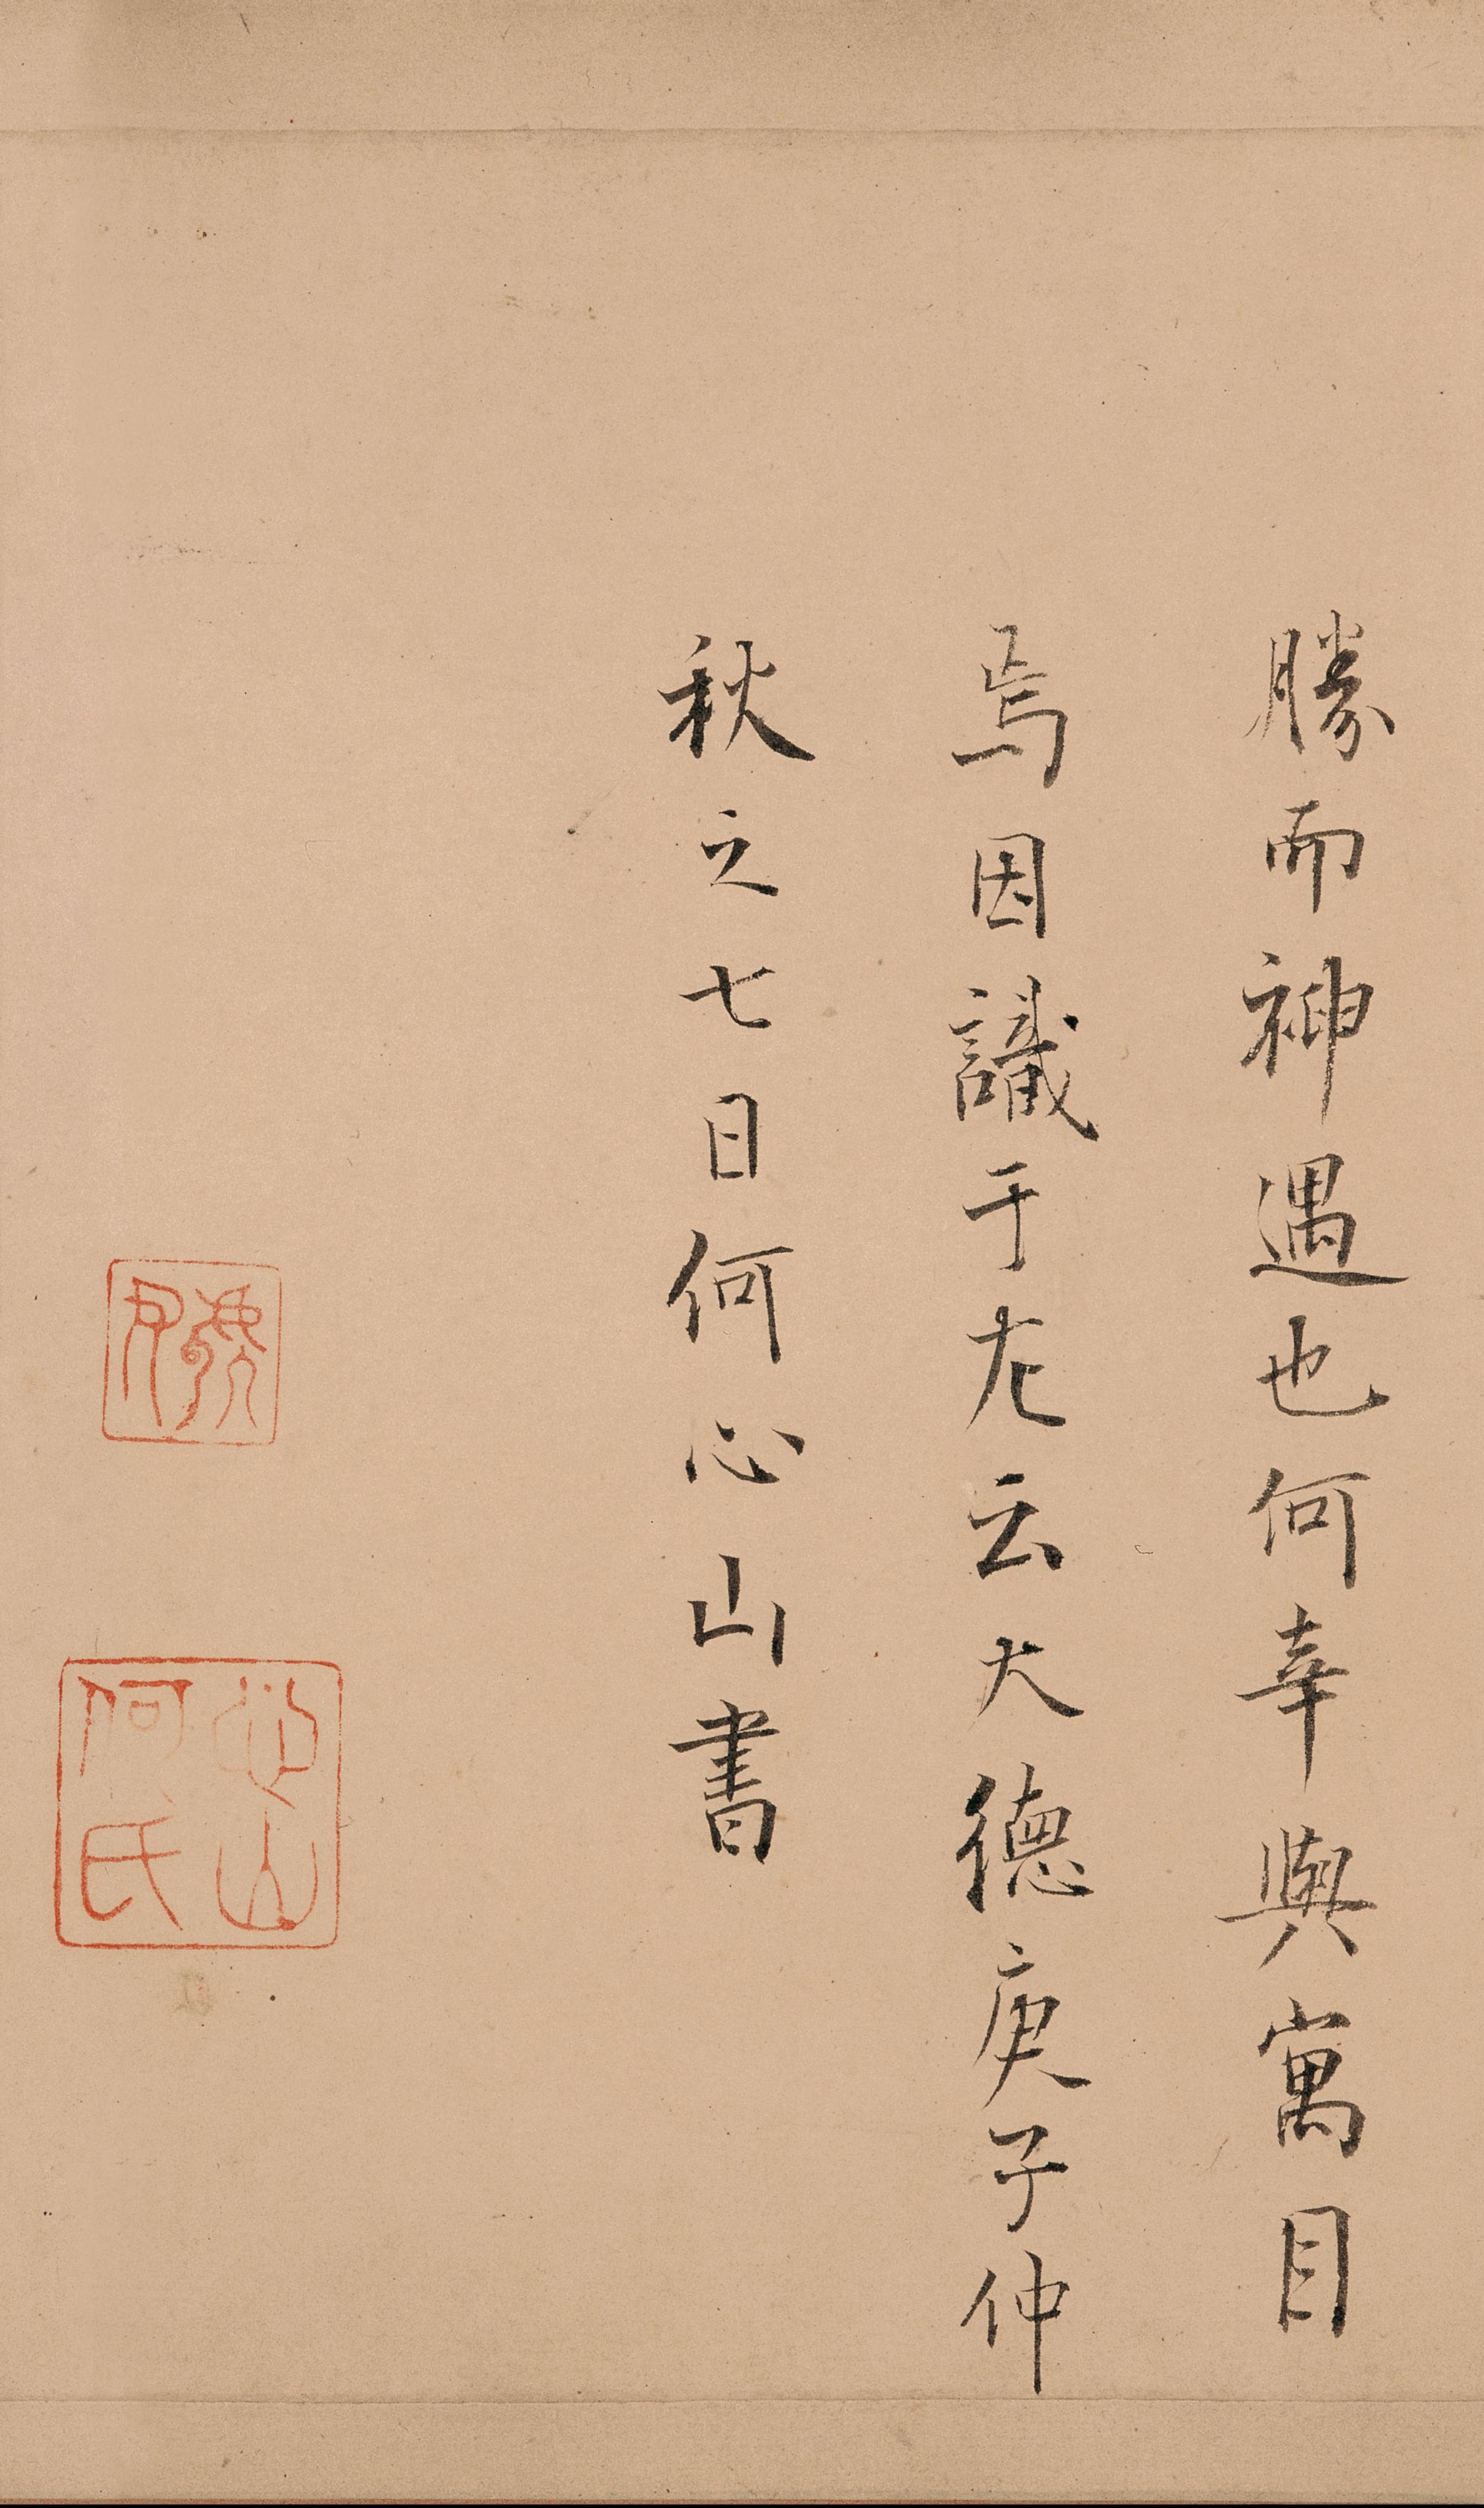 勝而神遇也何幸與寓目
焉因識于左云大德庚子仲
秋之七日何心山書
心山
何氏